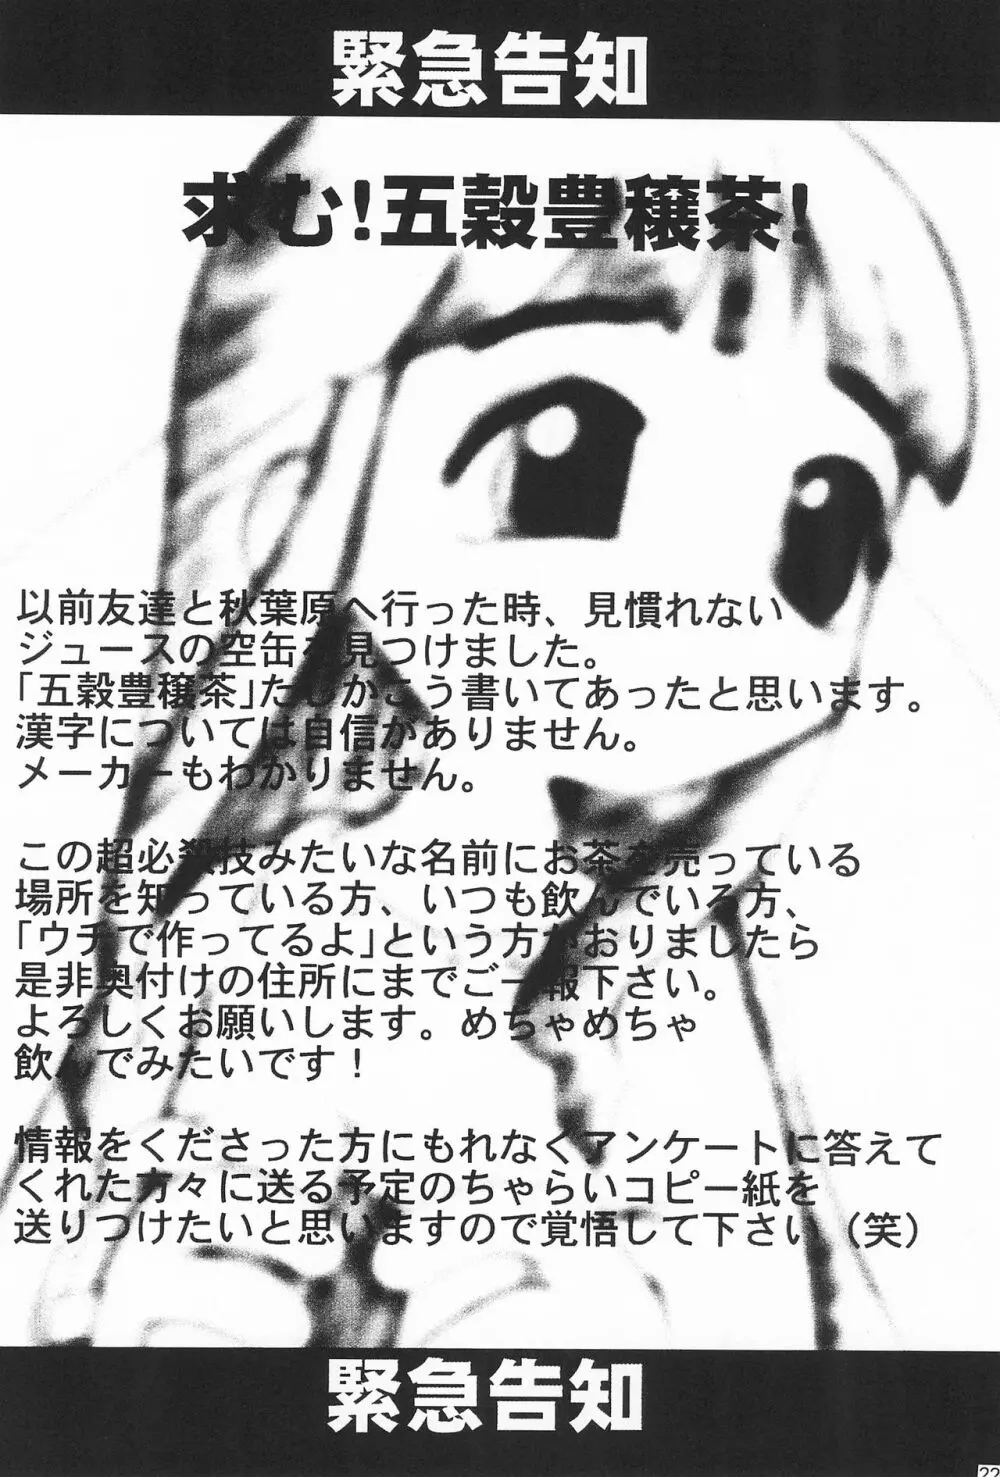 緊急告知
求む!五穀豊穣茶!
以前友達と秋葉原へ行った時、見慣れない
ジュースの空缶を見つけました。
「五穀豊穣茶」たしかこう書いてあったと思います。
漢字については自信がありません。
メーカーもわかりません。
この超必殺技みたいな名前にお茶を売っている
場所を知っている方、いつも飲んでいる方、
「ウチで作ってるよ」という方がおりましたら
是非奥付けの住所にまでご一報下さい。
よろしくお願いします。めちゃめちゃ
飲んでみたいです！
情報をくださった方にもれなくアンケートに答えて
くれた方々に送る予定のちゃらいコピー紙を
送りつけたいと思いますので覚悟して下さい（笑）
緊急告知
22